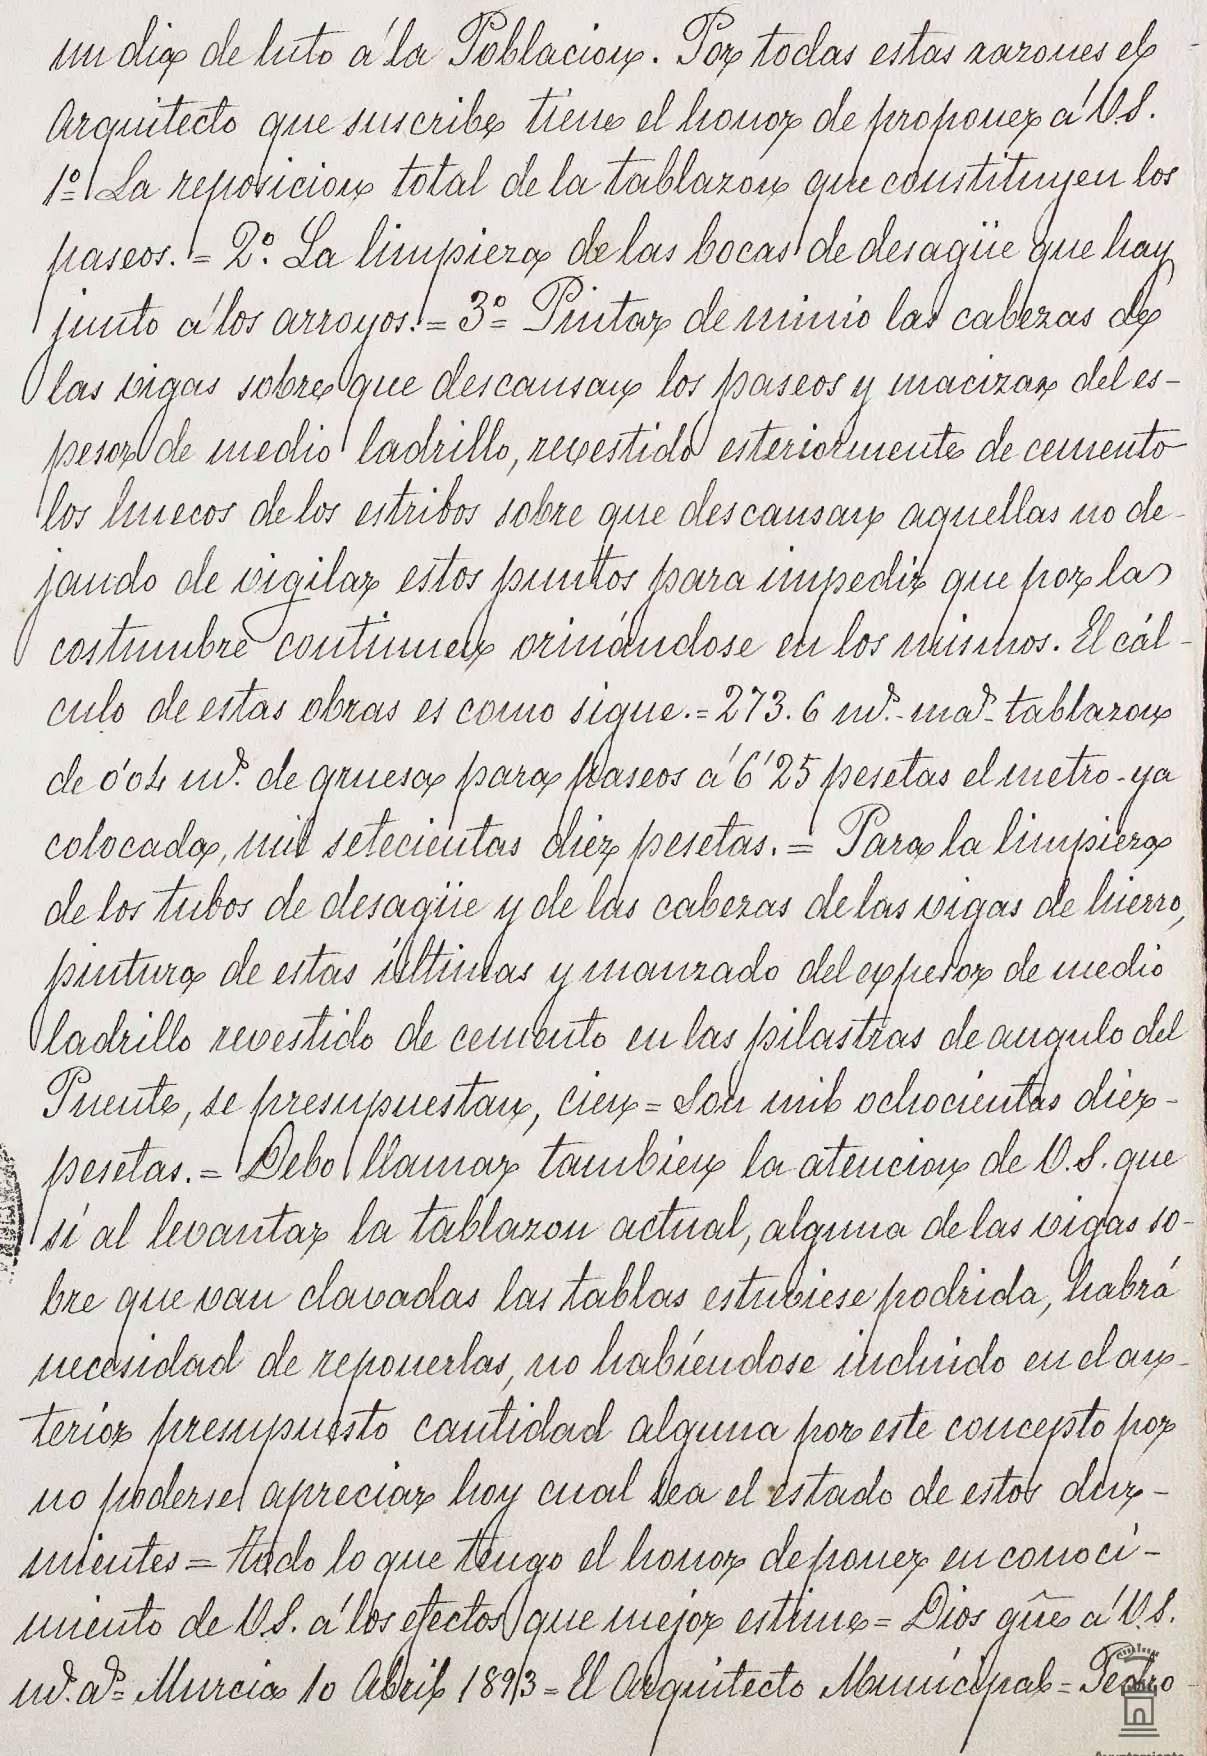 un dia de luto á la Poblacion. Por todas estas razones el
Arquitecto que suscribe tiene el honor de proponer á V.S.
1º La reposicion total de la tablazon que constituyen los
paseos. = 2º. La limpieza de las bocas de desagüe que hay
junto á los arroyos. = 3º Pintar de minio las cabezas de
las vigas sobre que descansan los paseos y macizar del es-
pesor de medio ladrillo, revestido esteriormente de cemento
los huecos de los estribos sobre que descansan aquellas no de-
jando de vigilar estos puntos para impedir que por la
costumbre continuen orinándose en los mismos. El cál-
culo de estas obras es como sigue. = 273.6 mº. mºdº tablazon
de 0'04 mº. de grueso para paseos á 6'25 pesetas el metro ya
colocada, mil setecientas diez pesetas. = Para la limpieza
de los tubos de desagüe y de las cabezas de las vigas de hierro,
pintura de estas últimas y manzado del expesor de medio
ladrillo revestido de cemento en las pilastras de angulo del
Puente, se presupuestan, cien = Son mil ochocientas diez-
pesetas. = Debo llamar tambien la atencion de V.S. que
si al levantar la tablazon actual, alguna de las vigas so-
bre que van clavadas las tablas estubiese podrida, habrá
necesidad de reponerlas, no habiéndose incluido en el an-
terior presupuesto cantidad alguna por este concepto por
no poderse apreciar hoy cual sea el estado de estos dur-
mientes = todo lo que tengo el honor de poner en conoci-
miento de V.S. á los efectos que mejor estime = Dios gûe á V.S.
mº. aº = Murcia 10 Abril 1893 = El Arquitecto Municipal = Pedro
Ayuntamiento